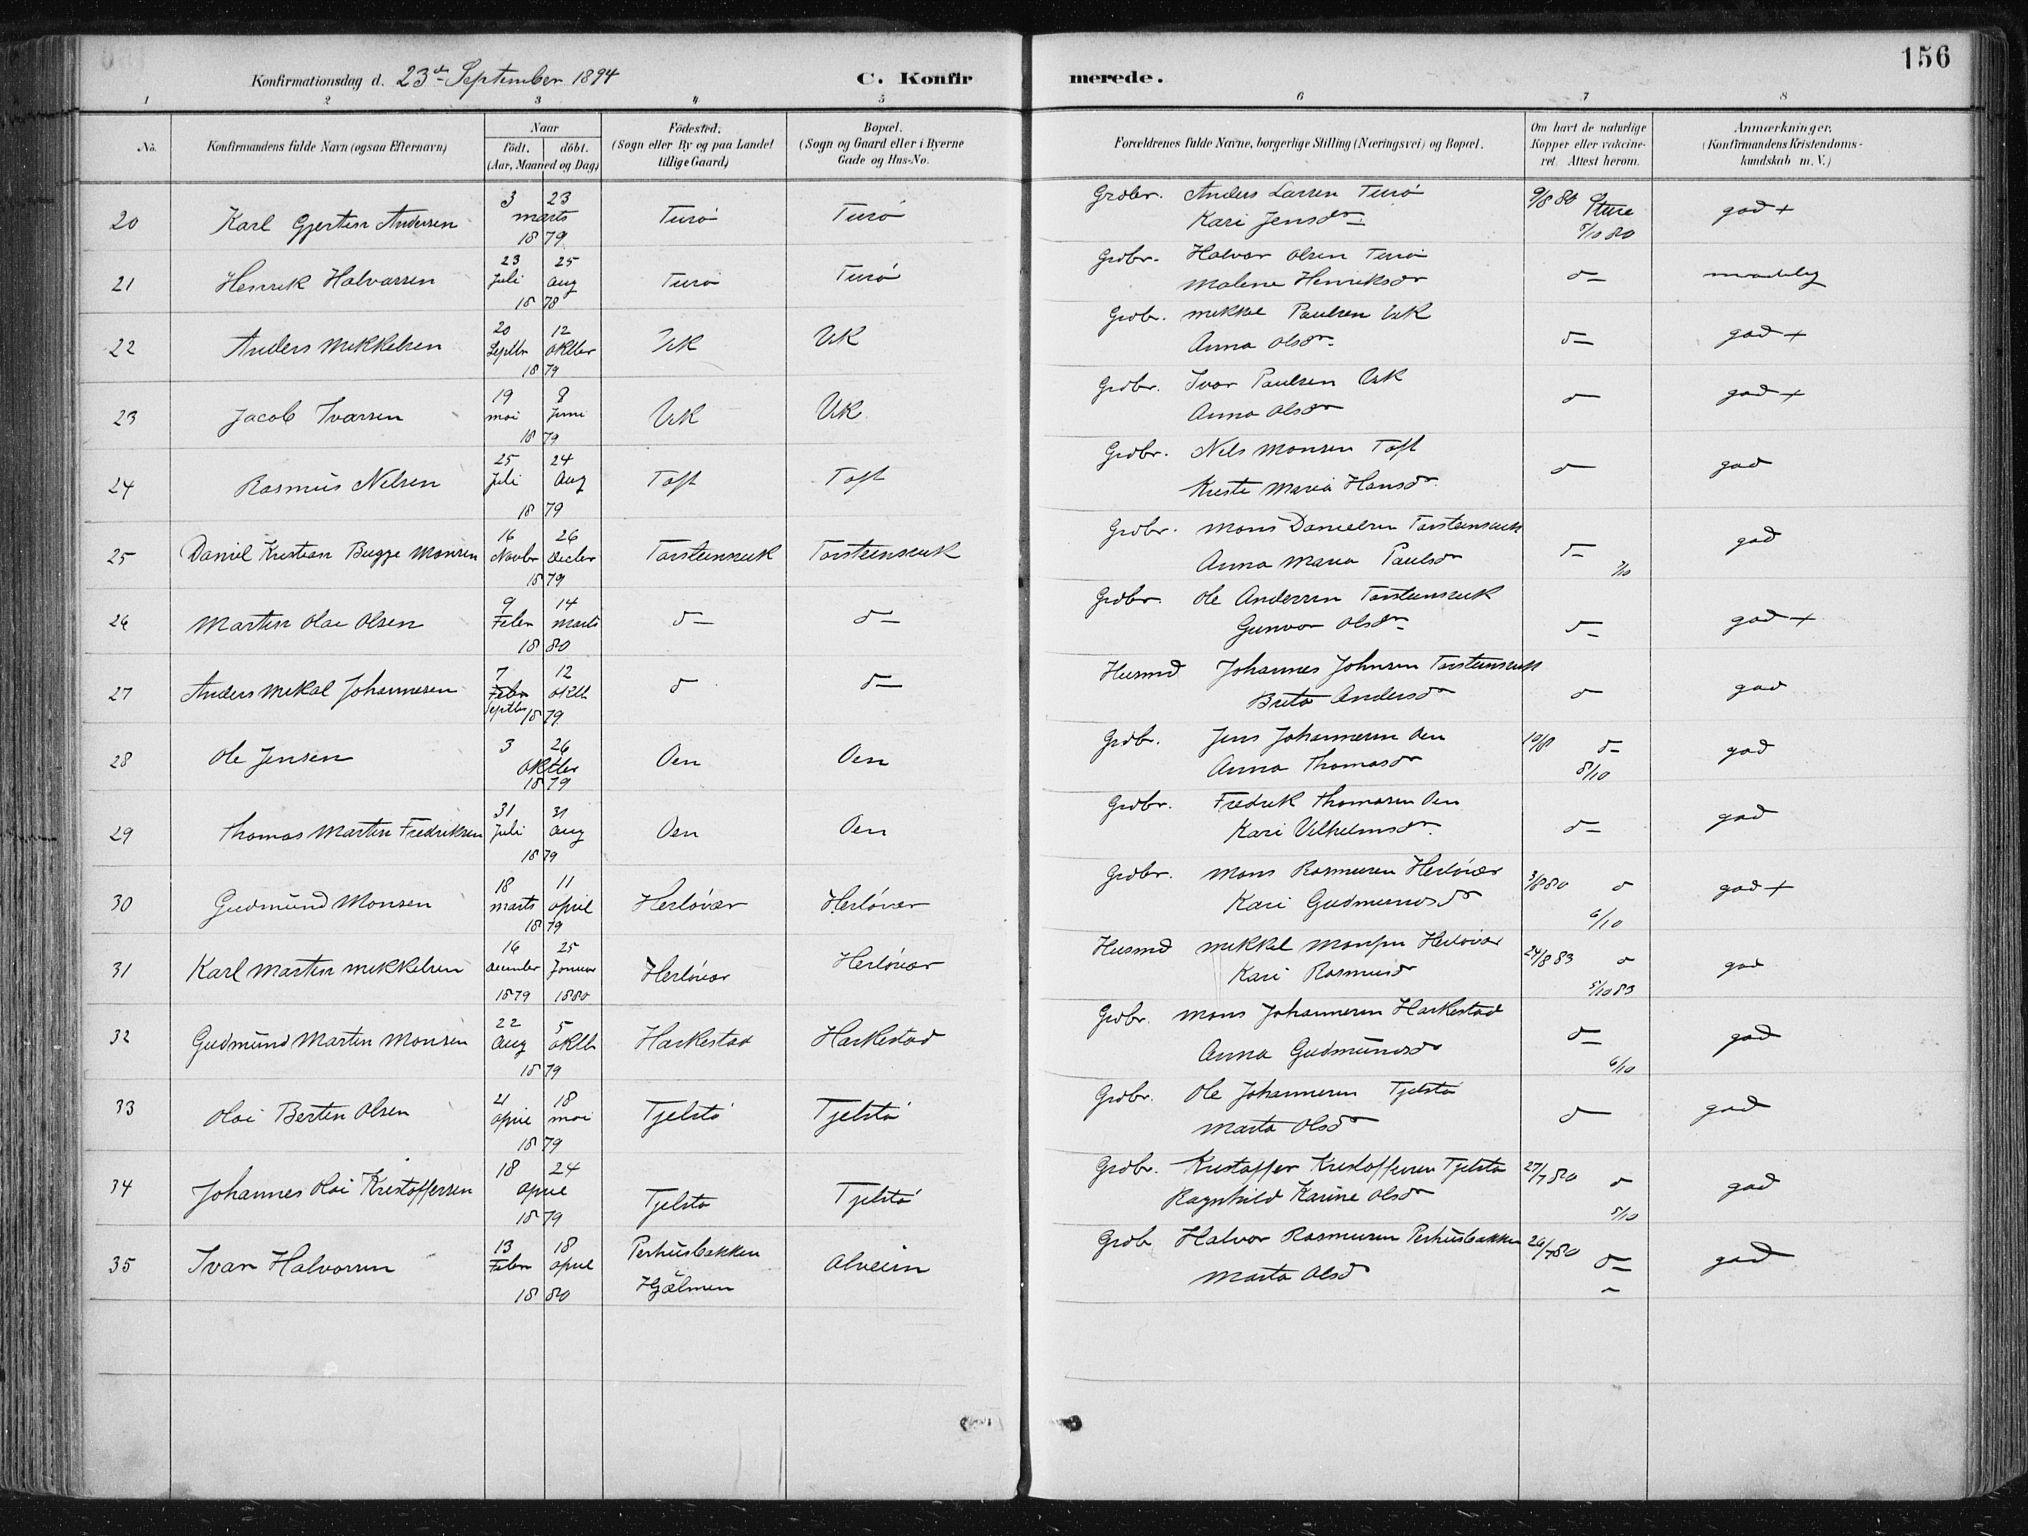 156
Konfirmationsdag d. 23d September 1894 C. Konfirmerede.
1 2 3 4 5 6 7 8
No. Konfirmandens fulde Navn (ogsaa Efternavn) Naar födt. döbt. (Aar, Maaned og Dag) Födested. (Sogn eller By og paa Landet tillige Gaard) Bopæl. (Sogn og Gaard eller i Byerne Gade og Hus-No. Forældrenes fulde Navne, borgerlige Stilling (Næringsvei) og Bopæl. Om havt de naturlige Kopper eller vaccineret. Attest herom. Anmærkninger. (Konfirmandens Kristendomskundskab m. V.)
20 Karl Gjertin Andersen 3 23 marts 1879 Turö Turö Grdbr. Anders Larsen Turö Kari Jensdr 9/8 80 Sture 5/10 80 god +
21 Henrik Halvorsen 23 Juli 25 Aug 1878 Turö Turö Grdbr. Halvor Olsen Turö Malene Henriksdr d– maadelig
22 Anders Mikkelsen 20 Septbr 12 Oktbr 1879 Vik Vik Grdbr. Mikkel Paulsen Vik Anna Olsdr d– god +
23 Jacob Ivarsen 19 mai 8 Juni 1879 Vik Vik Grdbr. Ivar Paulsen Vik Anna Olsdr d– god +
24 Rasmus Nilsen 25 Juli 24 Aug 1879 Toft Toft Grdbr. Nils Monsen Toft Kristi Maria Hansdr d– god
25 Daniel Kristian Bugge Monsen 16 Novbr 26 Decbr 1879 Torsteinsvik Torsteinsvik Grdbr. Mons Danielsen Torsteinsvik Anna Maria Paulsdr d– 7/10 god
26 Martin Olai Olsen 9 Febr 14 marts 1880 d– d– Grdbr. Ole Andersen Torsteinsvik Gunvor Olsdr d– god +
27 Anders Mikal Johannesen 7 Febr Septbr 12 Oktb 1879 d d– Husmd Johannes Johnsen Torsteinsvik Brita Andersdr d– god
28 Ole Jensen 3 26 Oktber 1879 Oen Oen Grdbr. Jens Johannesen Oen Anna Thomasdr 10/8 d– 8/10 god
29 Thomas Martin Fredriksen 31 Juli 31 Aug 1879 Oen Oen Grdbr. Fredrik Thomasen Oen Kari Vilhelmsdr d– god
30 Gudmund Monsen 18 marts 11 april 1879 Herlövær Herlövær Grdbr. Mons Rasmusen Herlövær Kari Gudmundsdr 3/8 80 d 6/10 god +
31 Karl Martin Mikkelsen 16 december 1879 25 Januar 1880 Herlövær Herlövær Husmd Mikkel Monsen Herlövær Kari Rasmusdr 24/8 83 d 5/10 83 god
32 Gudmund Martin Monsen 22 Aug 5 Oktb 1879 Harkestad Harkestad Grdbr. Mons Johannesen Harkestad Anna Gudmundsdr d– 6/10 god
33 Olai Bertin Olsen 21 april 18 mai 1879 Tjelstö Tjelstö Grdbr. Ole Johannesen Tjelstö Marta Olsdr d– god
34 Johannes Olai Kristoffersen 18 24 april 1879 Tjelstö Tjelstö Grdbr. Kristoffer Kristoffersen Tjelstö Ragnhild Karine Olsdr 27/7 80 d 5/10 god
35 Ivar Halvorsen 13 Febr 18 april 1880 Perhusbakken Hjælmen Alveim Grdb Halvor Rasmusen Perhusbakken Marta Olsd 26/7 80 d– god